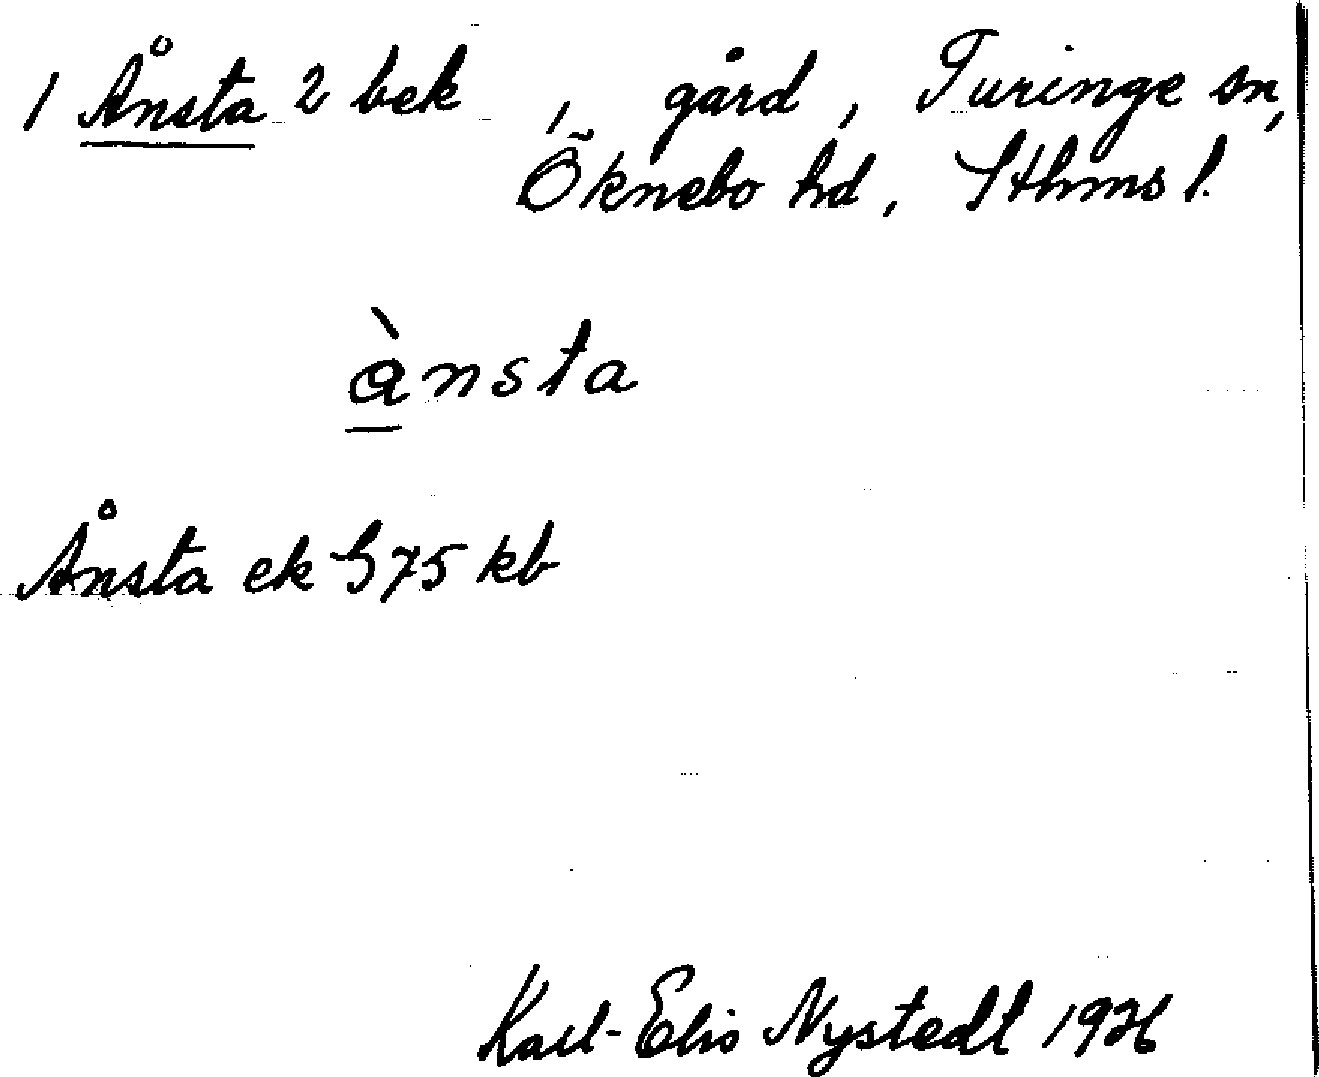 1 Ånsta 2 bek, gård, Turinge sn,
Öknebo hd, Sthms l.
ànsta
Ånsta ek S 75 kb
Karl-Elis Nystedt 1926